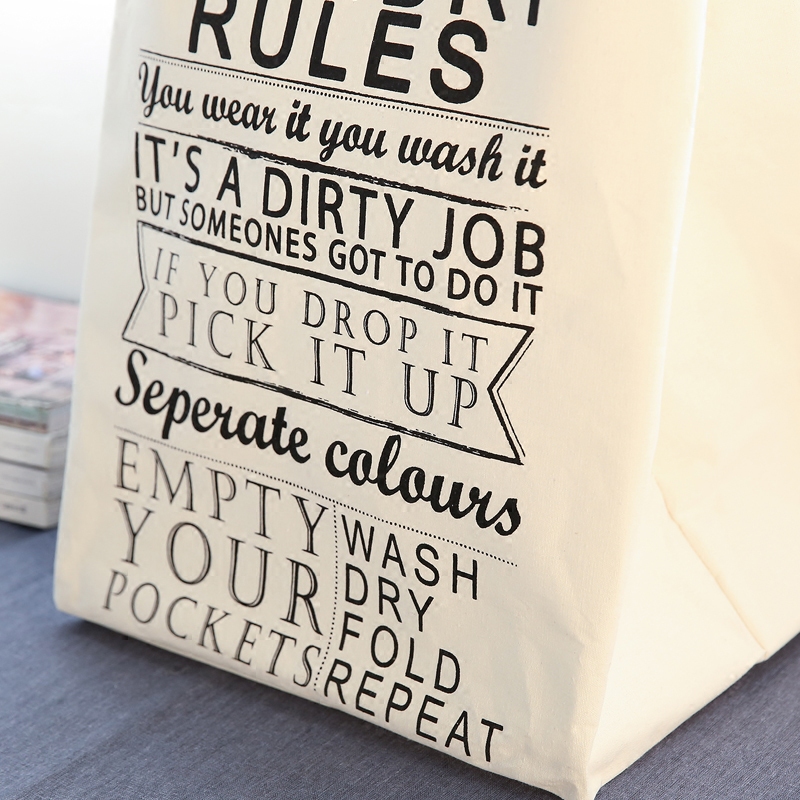 RULES
You wear it you wash it
IT'S A DIRTY JOB
BUT SOMEONES GOT TO DO IT
IF YOU DROP IT
PICK IT UP
Seperate colours
EMPTY
YOUR
POCKETS
WASH
DRY
FOLD
REPEAT